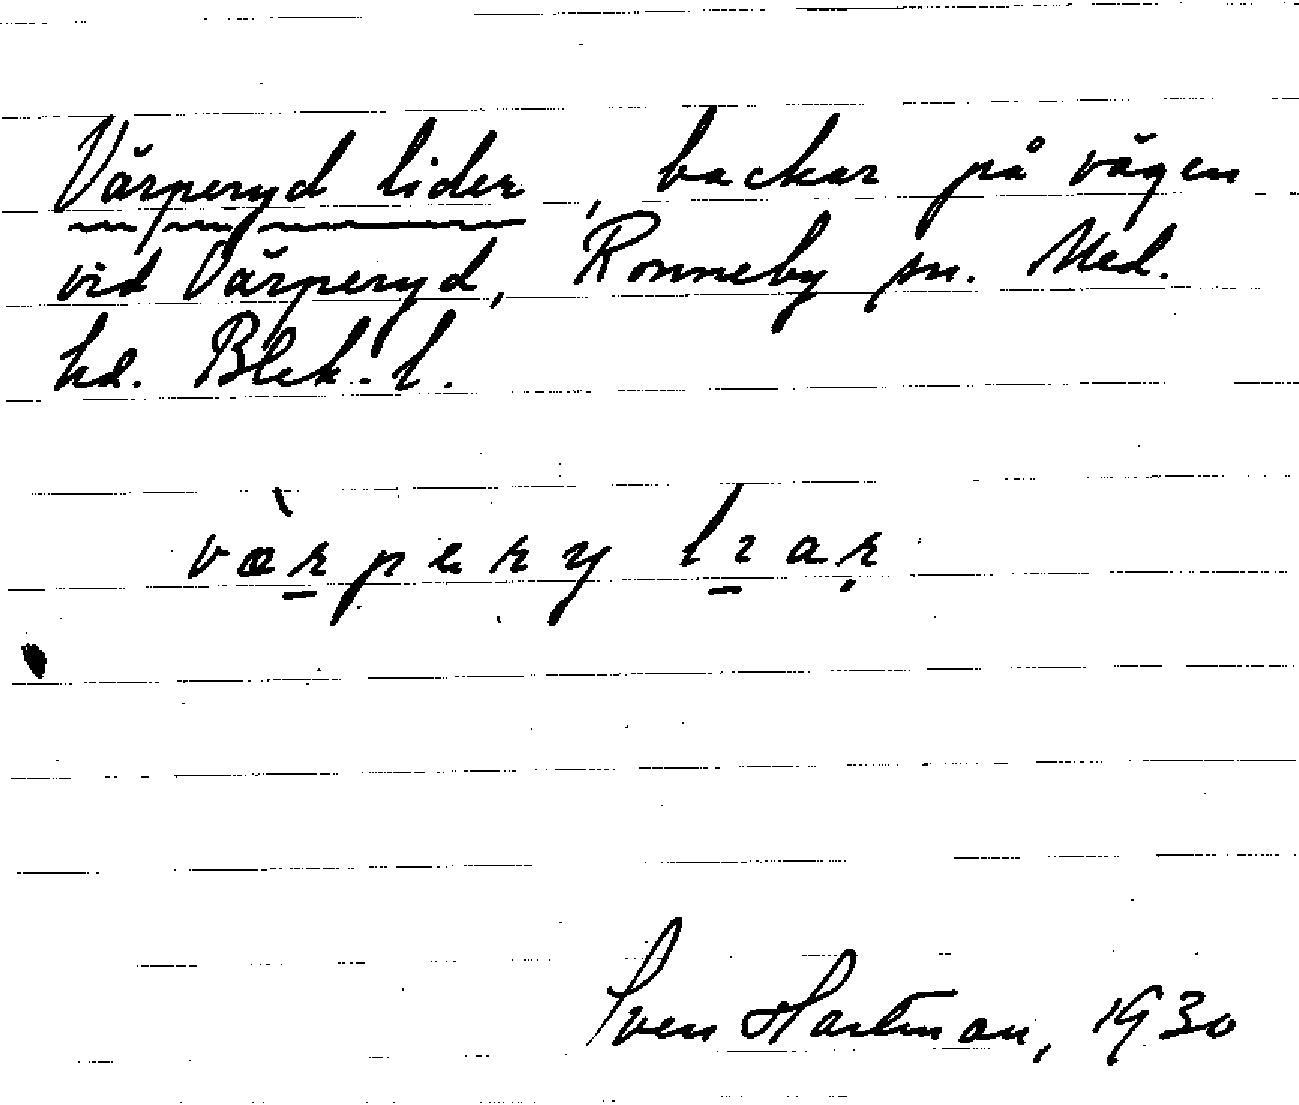 Värperyd lider, backar på vägen
vid Värperyd, Ronneby sn. Med.
hd. Blek. l.
væ̀r̠pery lɩ̠aṛ
Sven Hartman, 1930